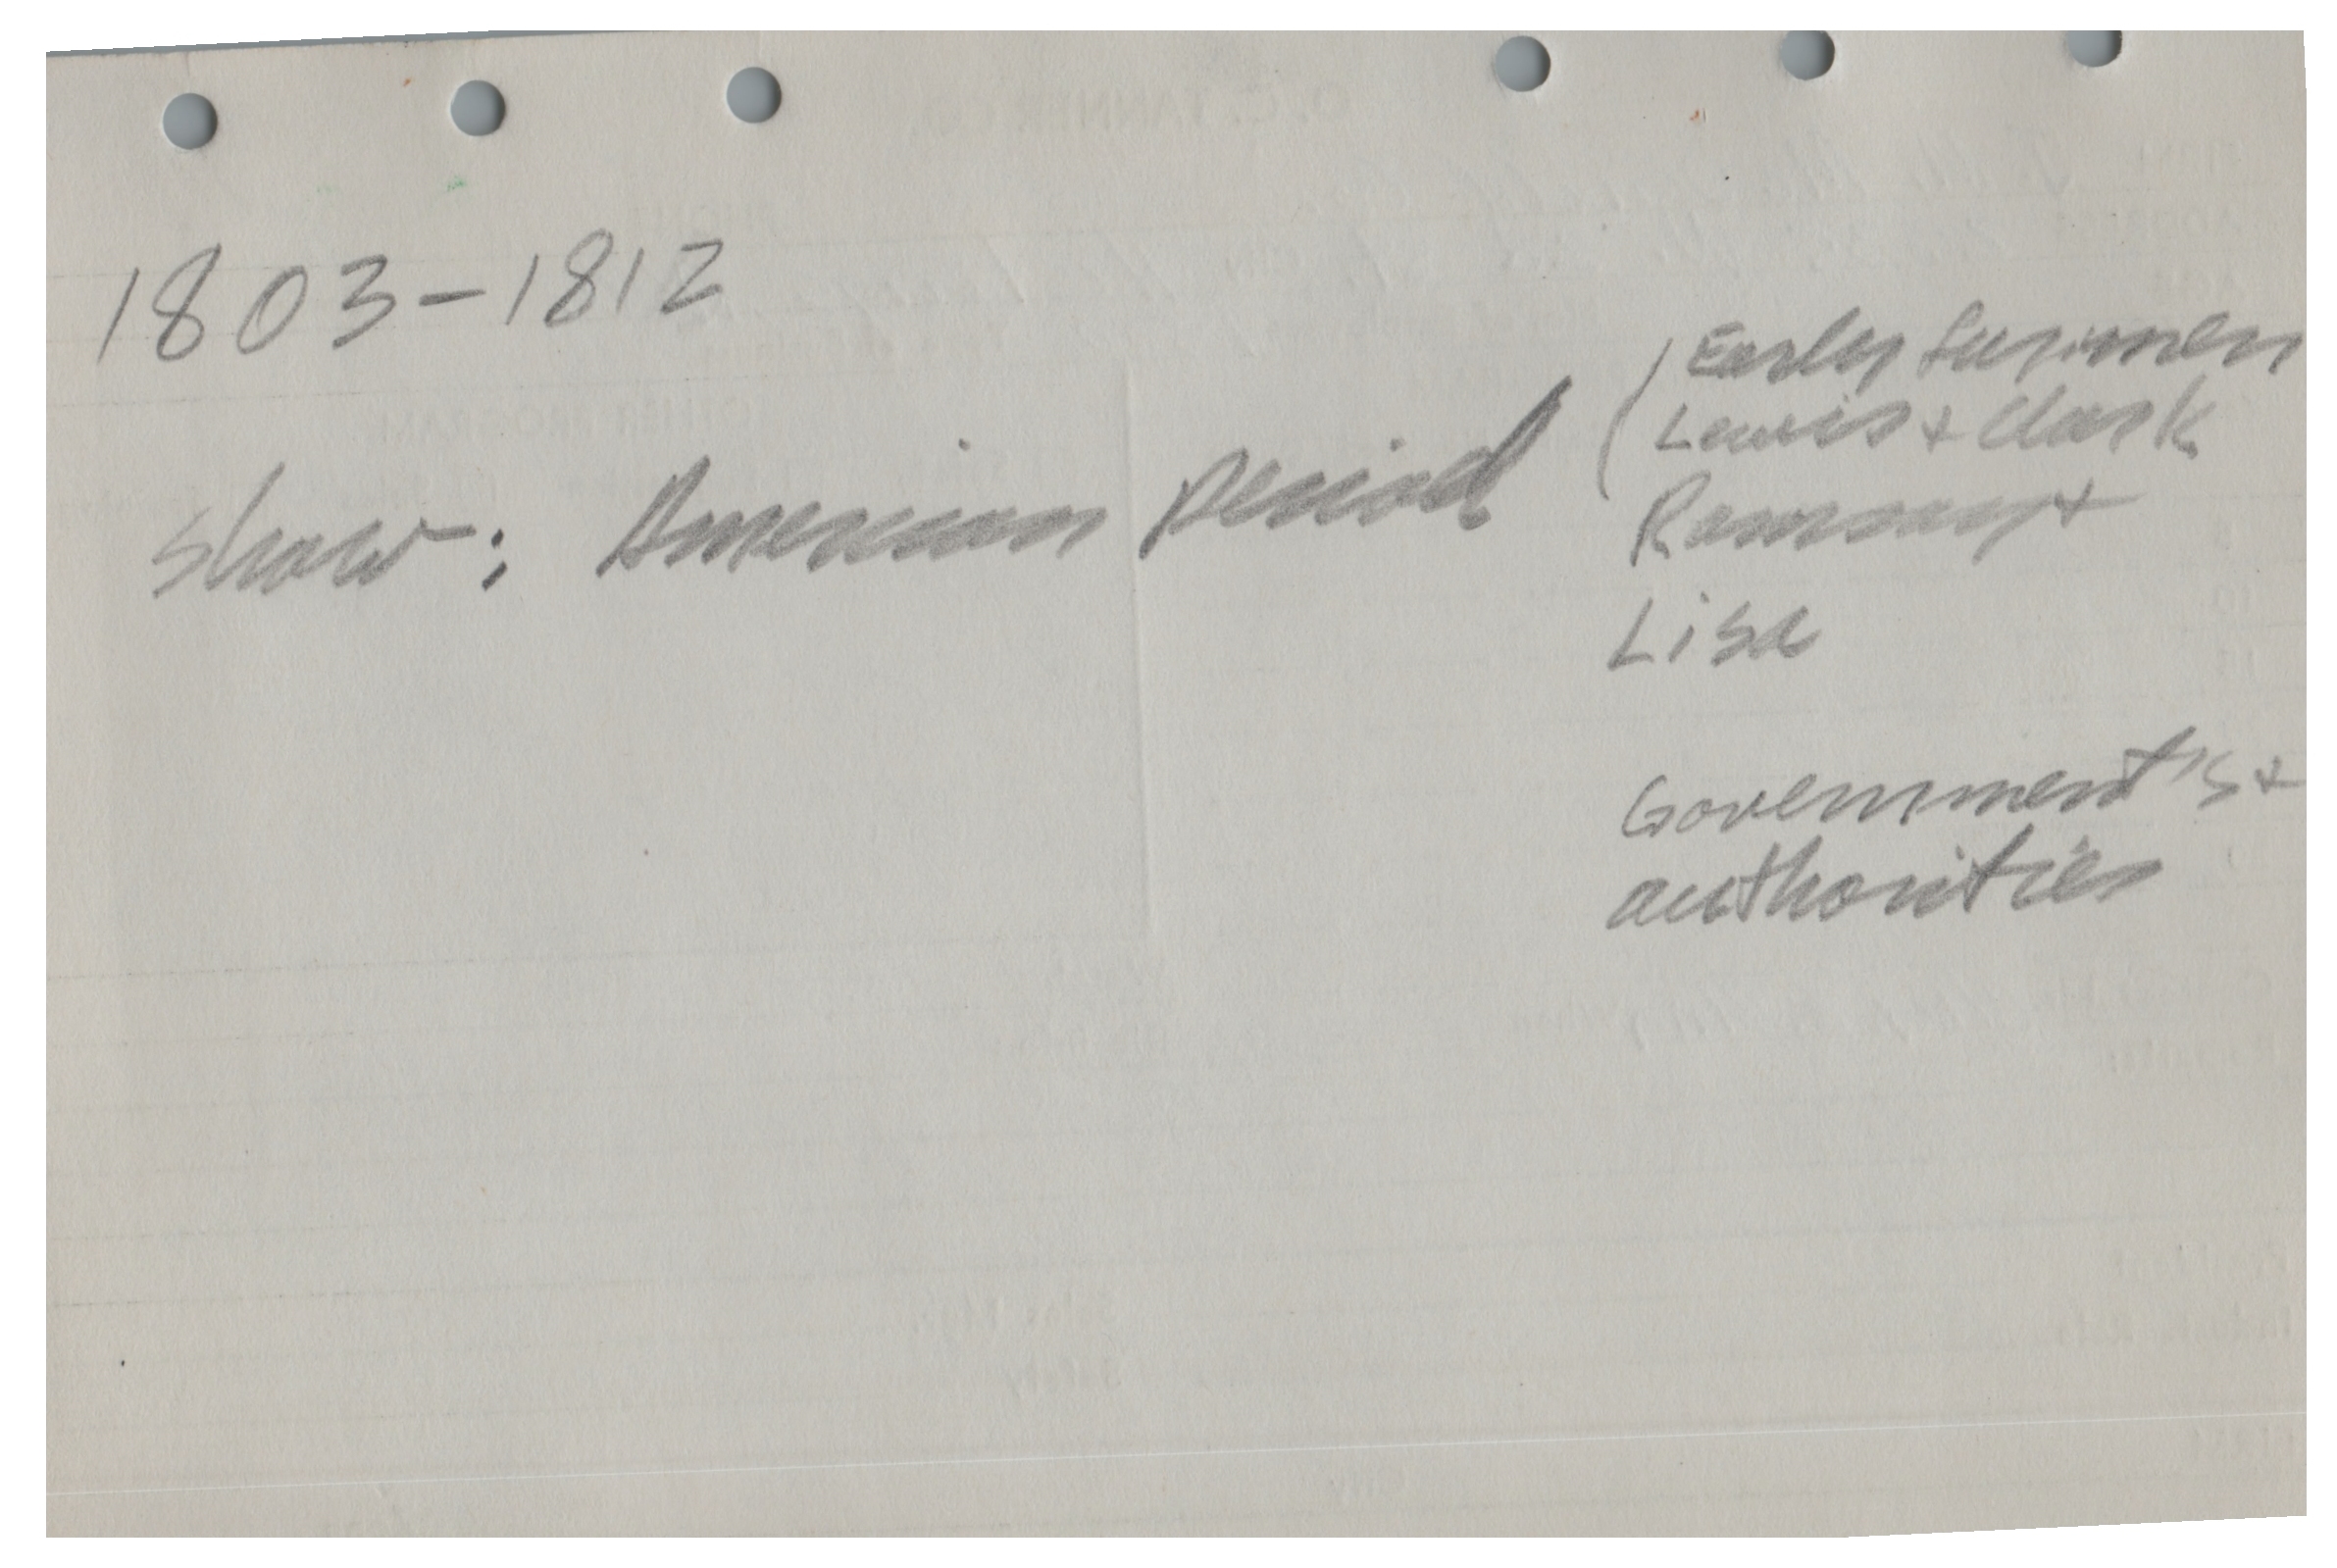 1803-1812
Show: American period
(Early
Lewis + Clark
Ramsay +
Lisa
Government's +
authorities